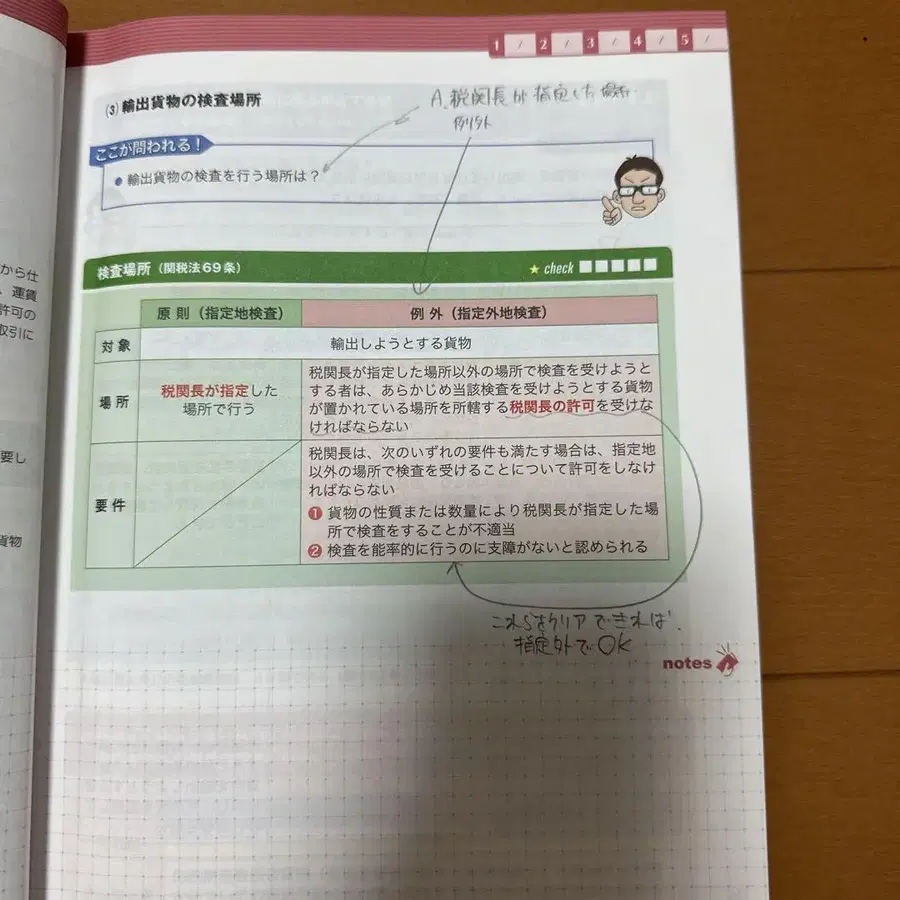 1 / 2 / 3 / 4 / 5 /
(3) 輸出貨物の検査場所
A.税関長が指定した場所
例外
ここが問われる!
● 輸出貨物の検査を行う場所は?
検査場所(関税法69条)
★ check
原則(指定地検査)
例外(指定外地検査)
対象
輸出しようとする貨物
場所
税関長が指定した
場所で行う
税関長が指定した場所以外の場所で検査を受けようと
する者は、あらかじめ当該検査を受けようとする貨物
が置かれている場所を所轄する税関長の許可を受けな
ければならない
要件
税関長は、次のいずれの要件も満たす場合は、指定地
以外の場所で検査を受けることについて許可をしなけ
ればならない
❶ 貨物の性質または数量により税関長が指定した場
所で検査をすることが不適当
❷ 検査を能率的に行うのに支障がないと認められる
これらをクリアできれば
指定外でOK
notes
から仕
、運賃
許可の
取引に
要し
貨物